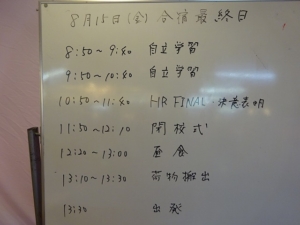 8月15日(金) 合宿最終日
8:50～9:40 自立学習
9:50～10:40 自立学習
10:50～11:40 HR FINAL・決意表明
11:50～12:10 閉校式
12:20～13:00 昼食
13:10～13:30 荷物搬出
13:30 出発